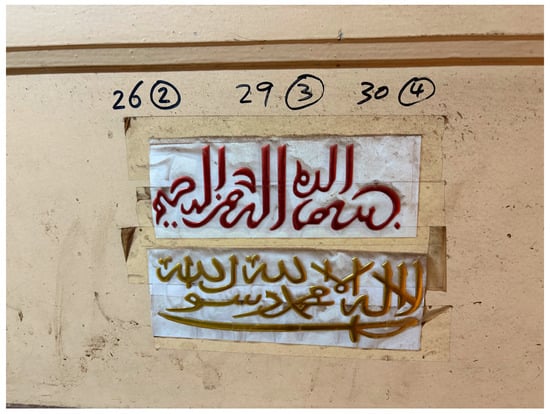 26 ② 29 ③ 30 ④
بسم الله الرحمن الرحيم
لا إله إلا الله محمد رسول الله